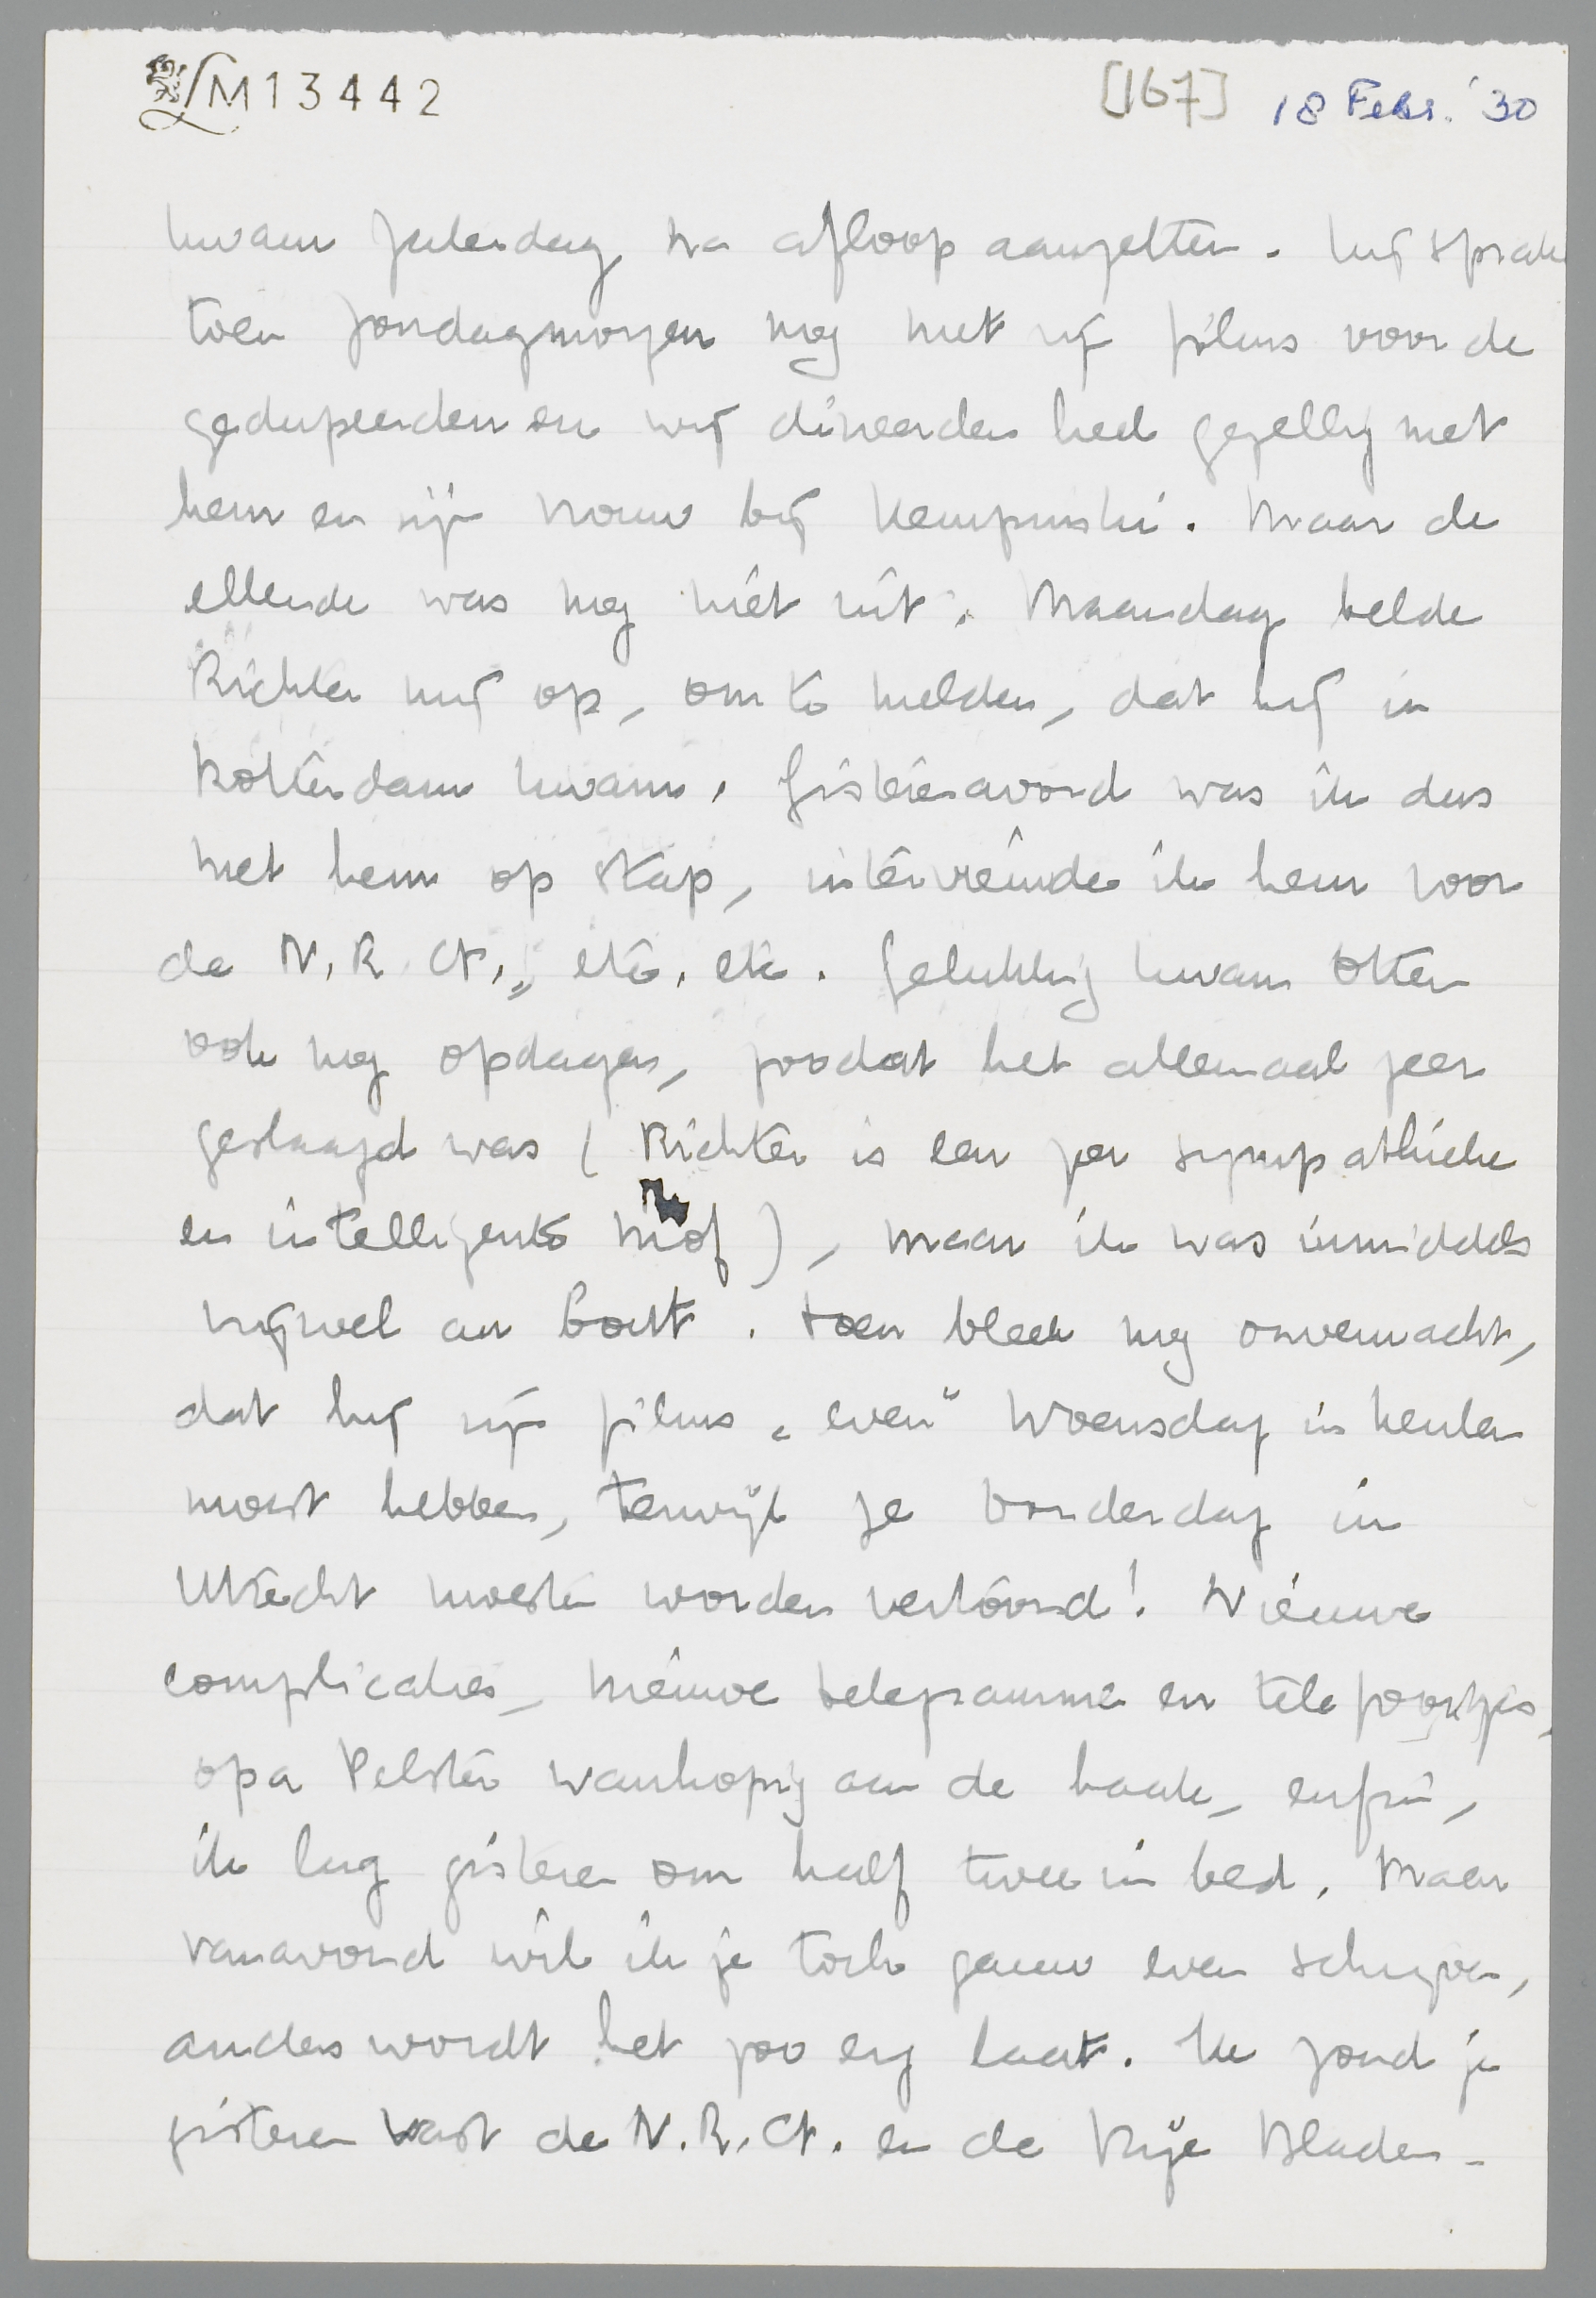 LM13442 [167] 18 Febr. '30
kwam Zaterdag na afloop aanzetten. Hij sprak
toen Zondagmorgen nog met zijn films voor de
gedupeerden en wij dineerden heel gezellig met
hem en zijn vrouw bij Kempinski. Maar de
ellende was nog niet uit. Maandag belde
Richter mij op, om te melden, dat hij in
Rotterdam kwam. Gisterenavond was ik dus
met hem op stap, interviewde ik hem voor
de N.R.Ct., etc. etc. Gelukkig kwam Otten
ook nog opdagen, zoodat het allemaal zeer
geslaagd was (Richter is een zer sympathieke
en intelligente mof), maar ik was inmiddels
vrijwel au bout. Toen bleek nog onverwacht,
dat hij zijn films „even" Woensdag in Keulen
moest hebben, terwijl ze Donderdag in
Utrecht moesten worden vertoond! Nieuwe
complicaties, nieuwe telegrammen en telefoontjes,
opa Pelster wanhopig aan de haak, enfin,
ik lag gisteren om half twee in bed. Maar
vanavond wil ik je toch gauw even schrijven,
anders wordt het zoo erg laat. Ik zond je
gisteren vast de N.R.Ct. en de Vrije Bladen.